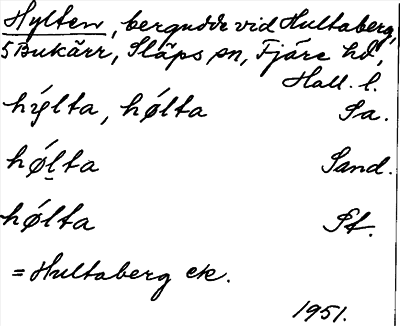 Hylten, bergudde vid Hultaberg,
5 Bukärr, Släps sn, Fjäre hd,
Hall. l.
hỵ́lta, hǿlta Sa.
hǿḷta Sand.
hǿlta St.
= Hultaberg ek.
1951.